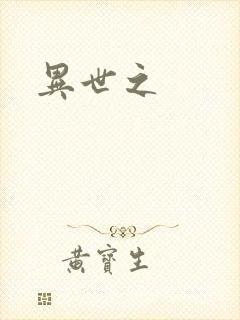 異世之
黃寶生